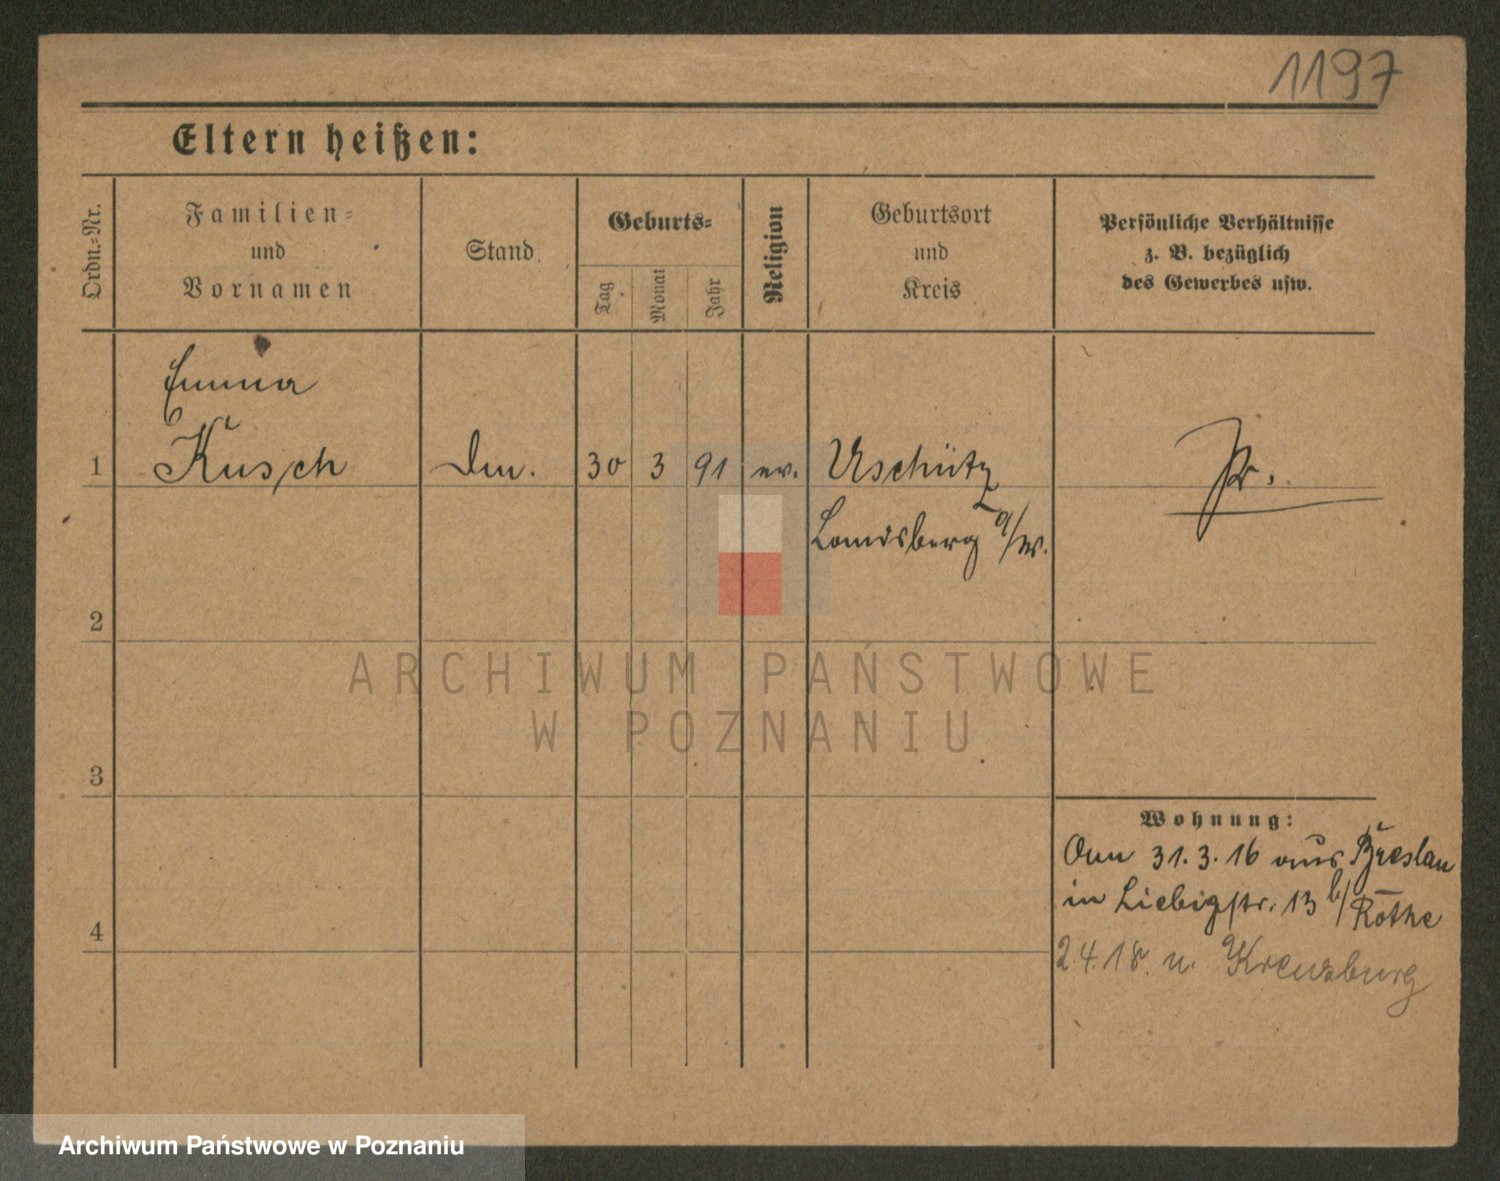 1197
Eltern heißen:
Ordn.-Nr.
Familien-
und
Vornamen
Stand
Geburts-
Tag
Monat
Jahr
Religion
Geburtsort
und
Kreis
Persönliche Verhältnisse
z. B. bezüglich
des Gewerbes usw.
Emma
1 Kusch 30 3 91 ev. Uschütz Pr.
Landsberg a/W.
2
3
4
Wohnung:
31.3.16 aus Breslau
in Liebigstr. 13 b/ Röthe
2.4.18. n. Kreuzburg
ARCHIWUM PAŃSTWOWE
W POZNANIU
Archiwum Państwowe w Poznaniu